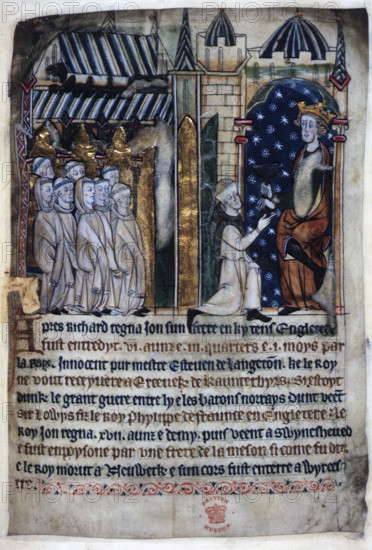 Apres Richard regna Jon sun frere en ky tens Engletere
fust entredyt .vi. aunz e .iii. quarters e .i. moys par
la pape Innocent pur mestre Esteuen de Langetun. ke le roy
ne vout receyuere a Eveske de Kaunterbyri.
dunk le grant guere entre ly e les barons norrays Dunt veent
sir Lowys fiz le roy Phylippe de Fraunce en Engletere. le
roy Jon regna .xvii. aunz e demy. puis veent a Swynesheued
e fust enpoysone par une frere de la meson si come fu dit
e le roy morut a Neuwerk e sun cors fust enterre a Wyrces
tre.
BRITISH
MUSEUM